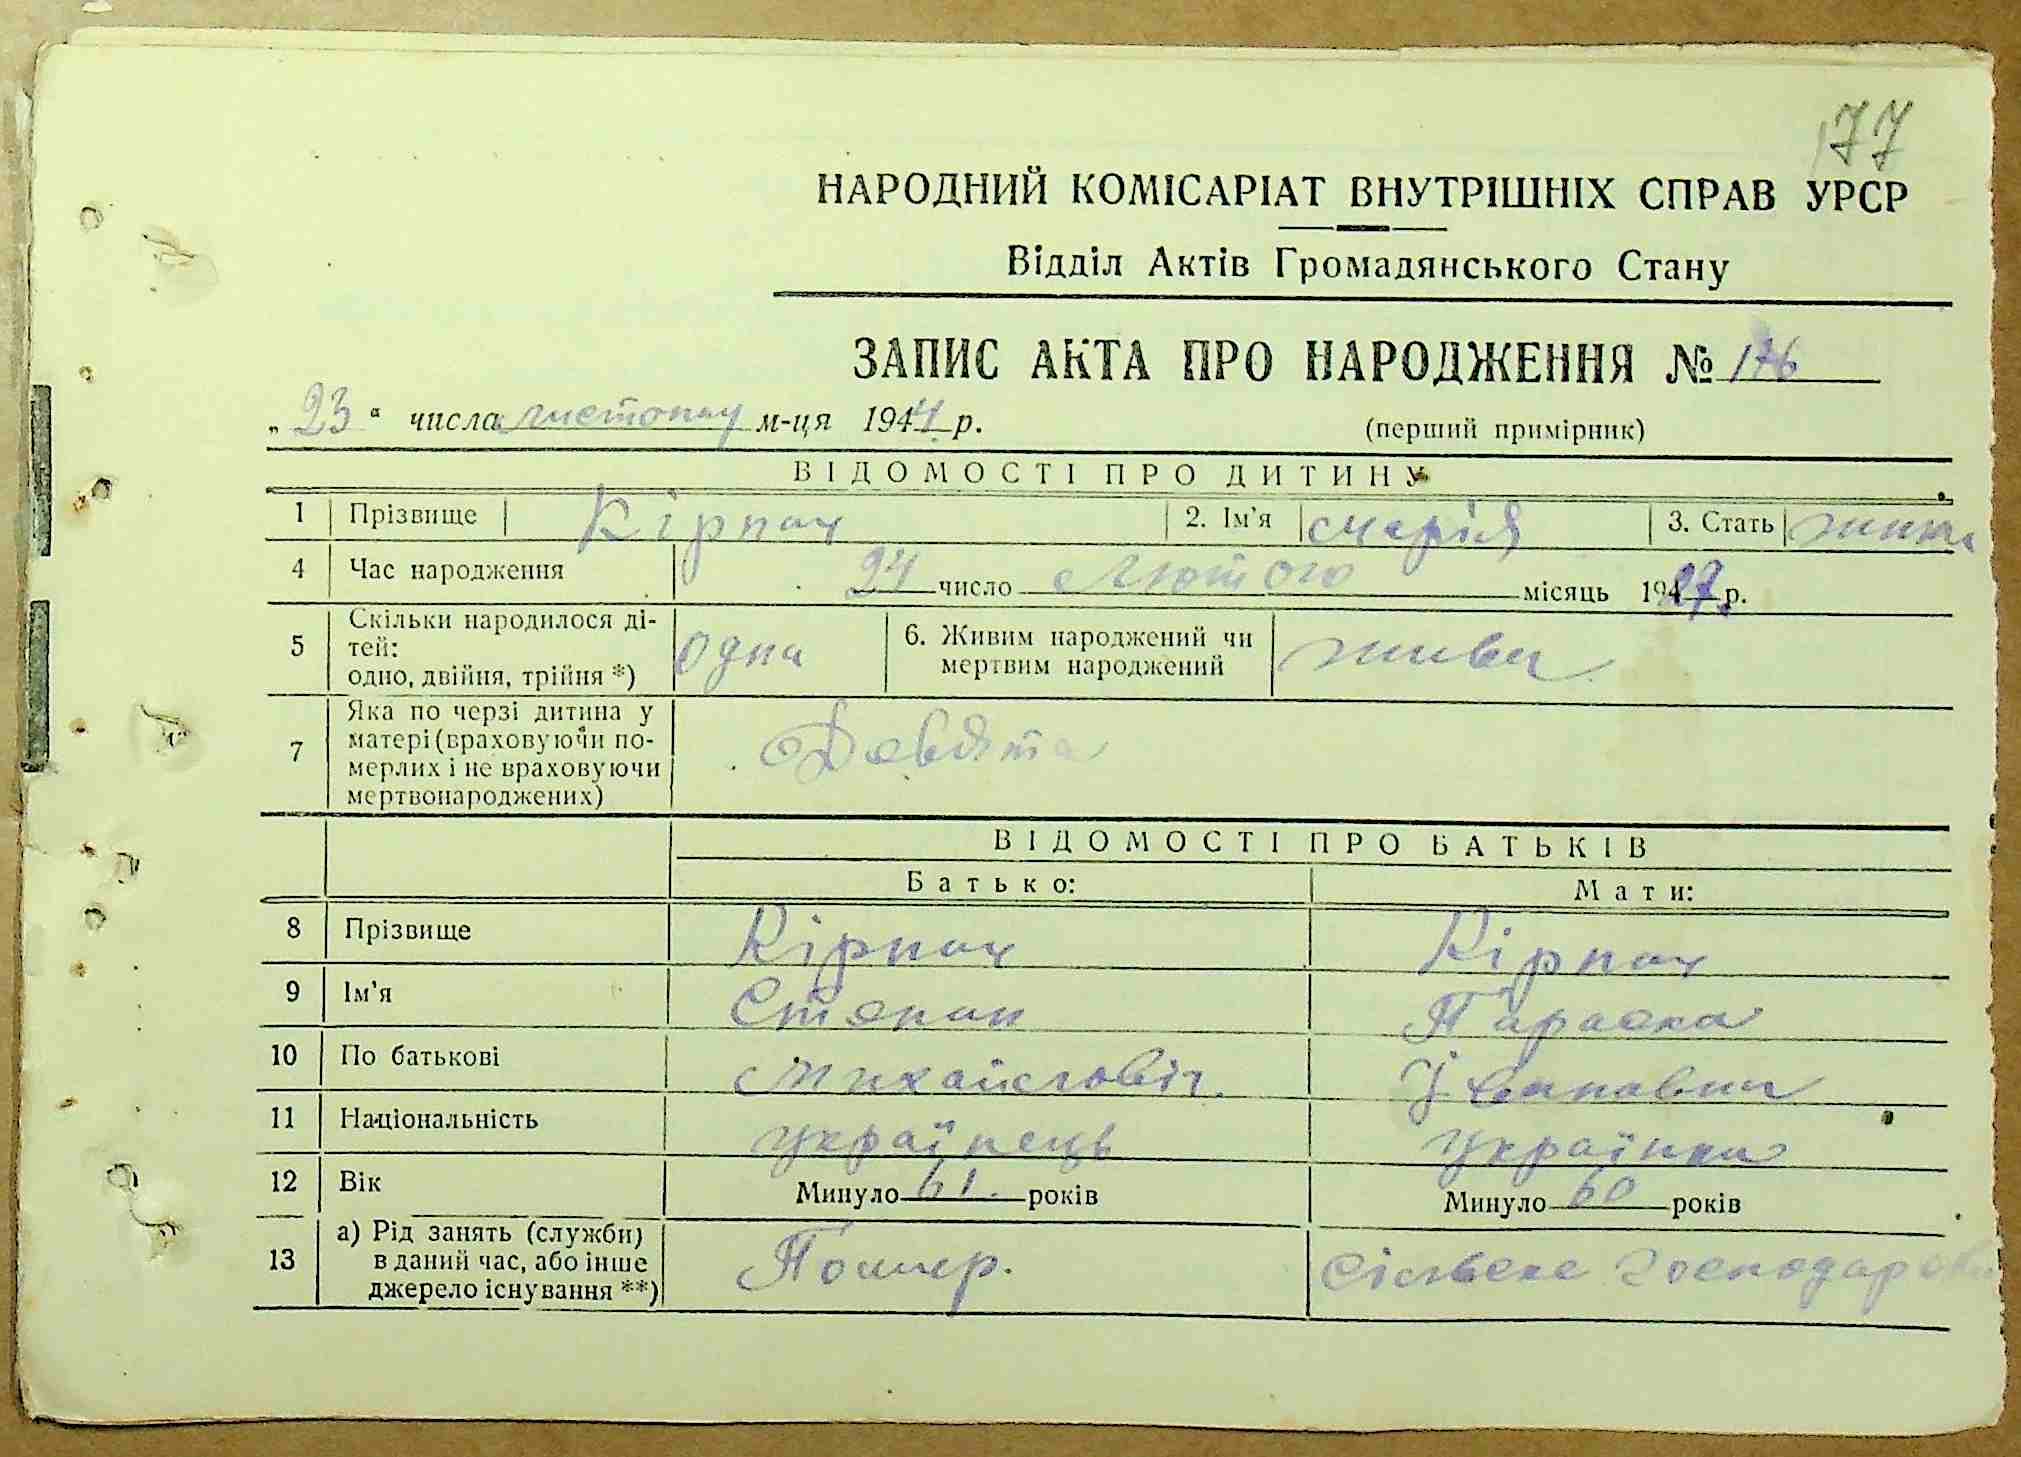 177
НАРОДНИЙ КОМІСАРІАТ ВНУТРІШНІХ СПРАВ УРСР
Відділ Актів Громадянського Стану
ЗАПИС АКТА ПРО НАРОДЖЕННЯ № 176
„ 23 “ числа листопад м-ця 1944 р. (перший примірник)
ВІДОМОСТІ ПРО ДИТИНУ
1 Прізвище Кірпач 2. Ім'я Марія 3. Стать
4 Час народження 24 число Лютого місяць 1927 р.
5 Скільки народилося ді-
тей:
одно, двійня, трійня *) одна 6. Живим народжений чи
мертвим народжений жива
7 Яка по черзі дитина у
матері (враховуючи по-
мерлих і не враховуючи
мертвонароджених) Девята
ВІДОМОСТІ ПРО БАТЬКІВ
Батько: Мати:
8 Прізвище Кірпач Кірпач
9 Ім'я Степан Параска
10 По батькові Михайловіч Івановна
11 Національність українець українка
12 Вік Минуло 61. років Минуло 60 років
13 а) Рід занять (служби)
в даний час, або інше
джерело існування **) Помер. Сільске господарство